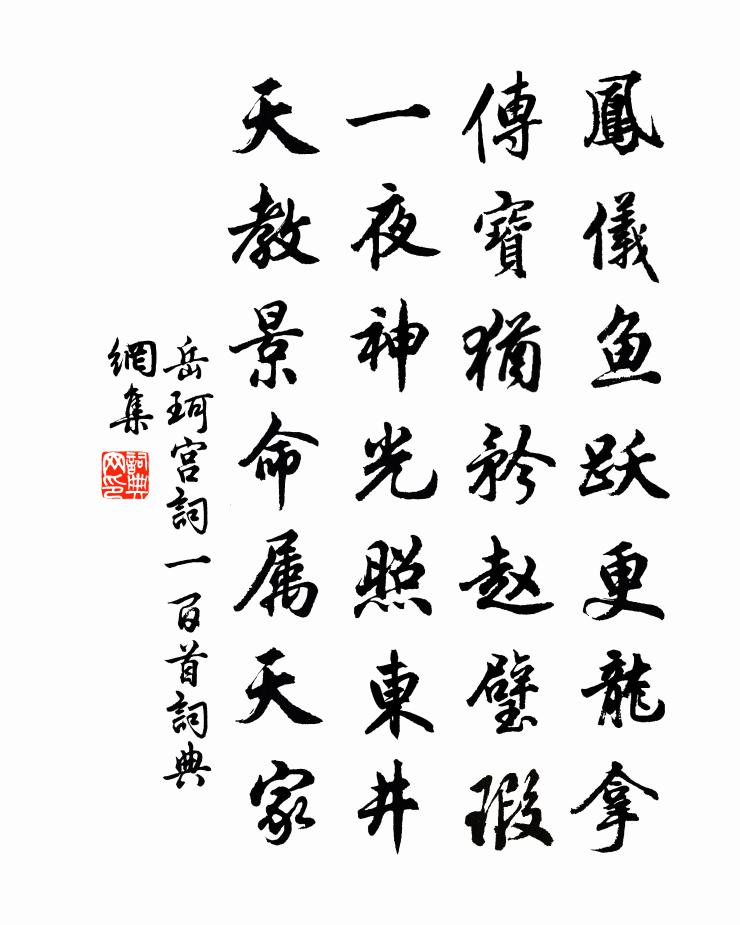 鳳儀鱼跃更龍拿
傳寶猶矜赵璧瑕
一夜神光照東井
天教景命属天家
岳珂宫詞一百首詞典
網集
詞典網印